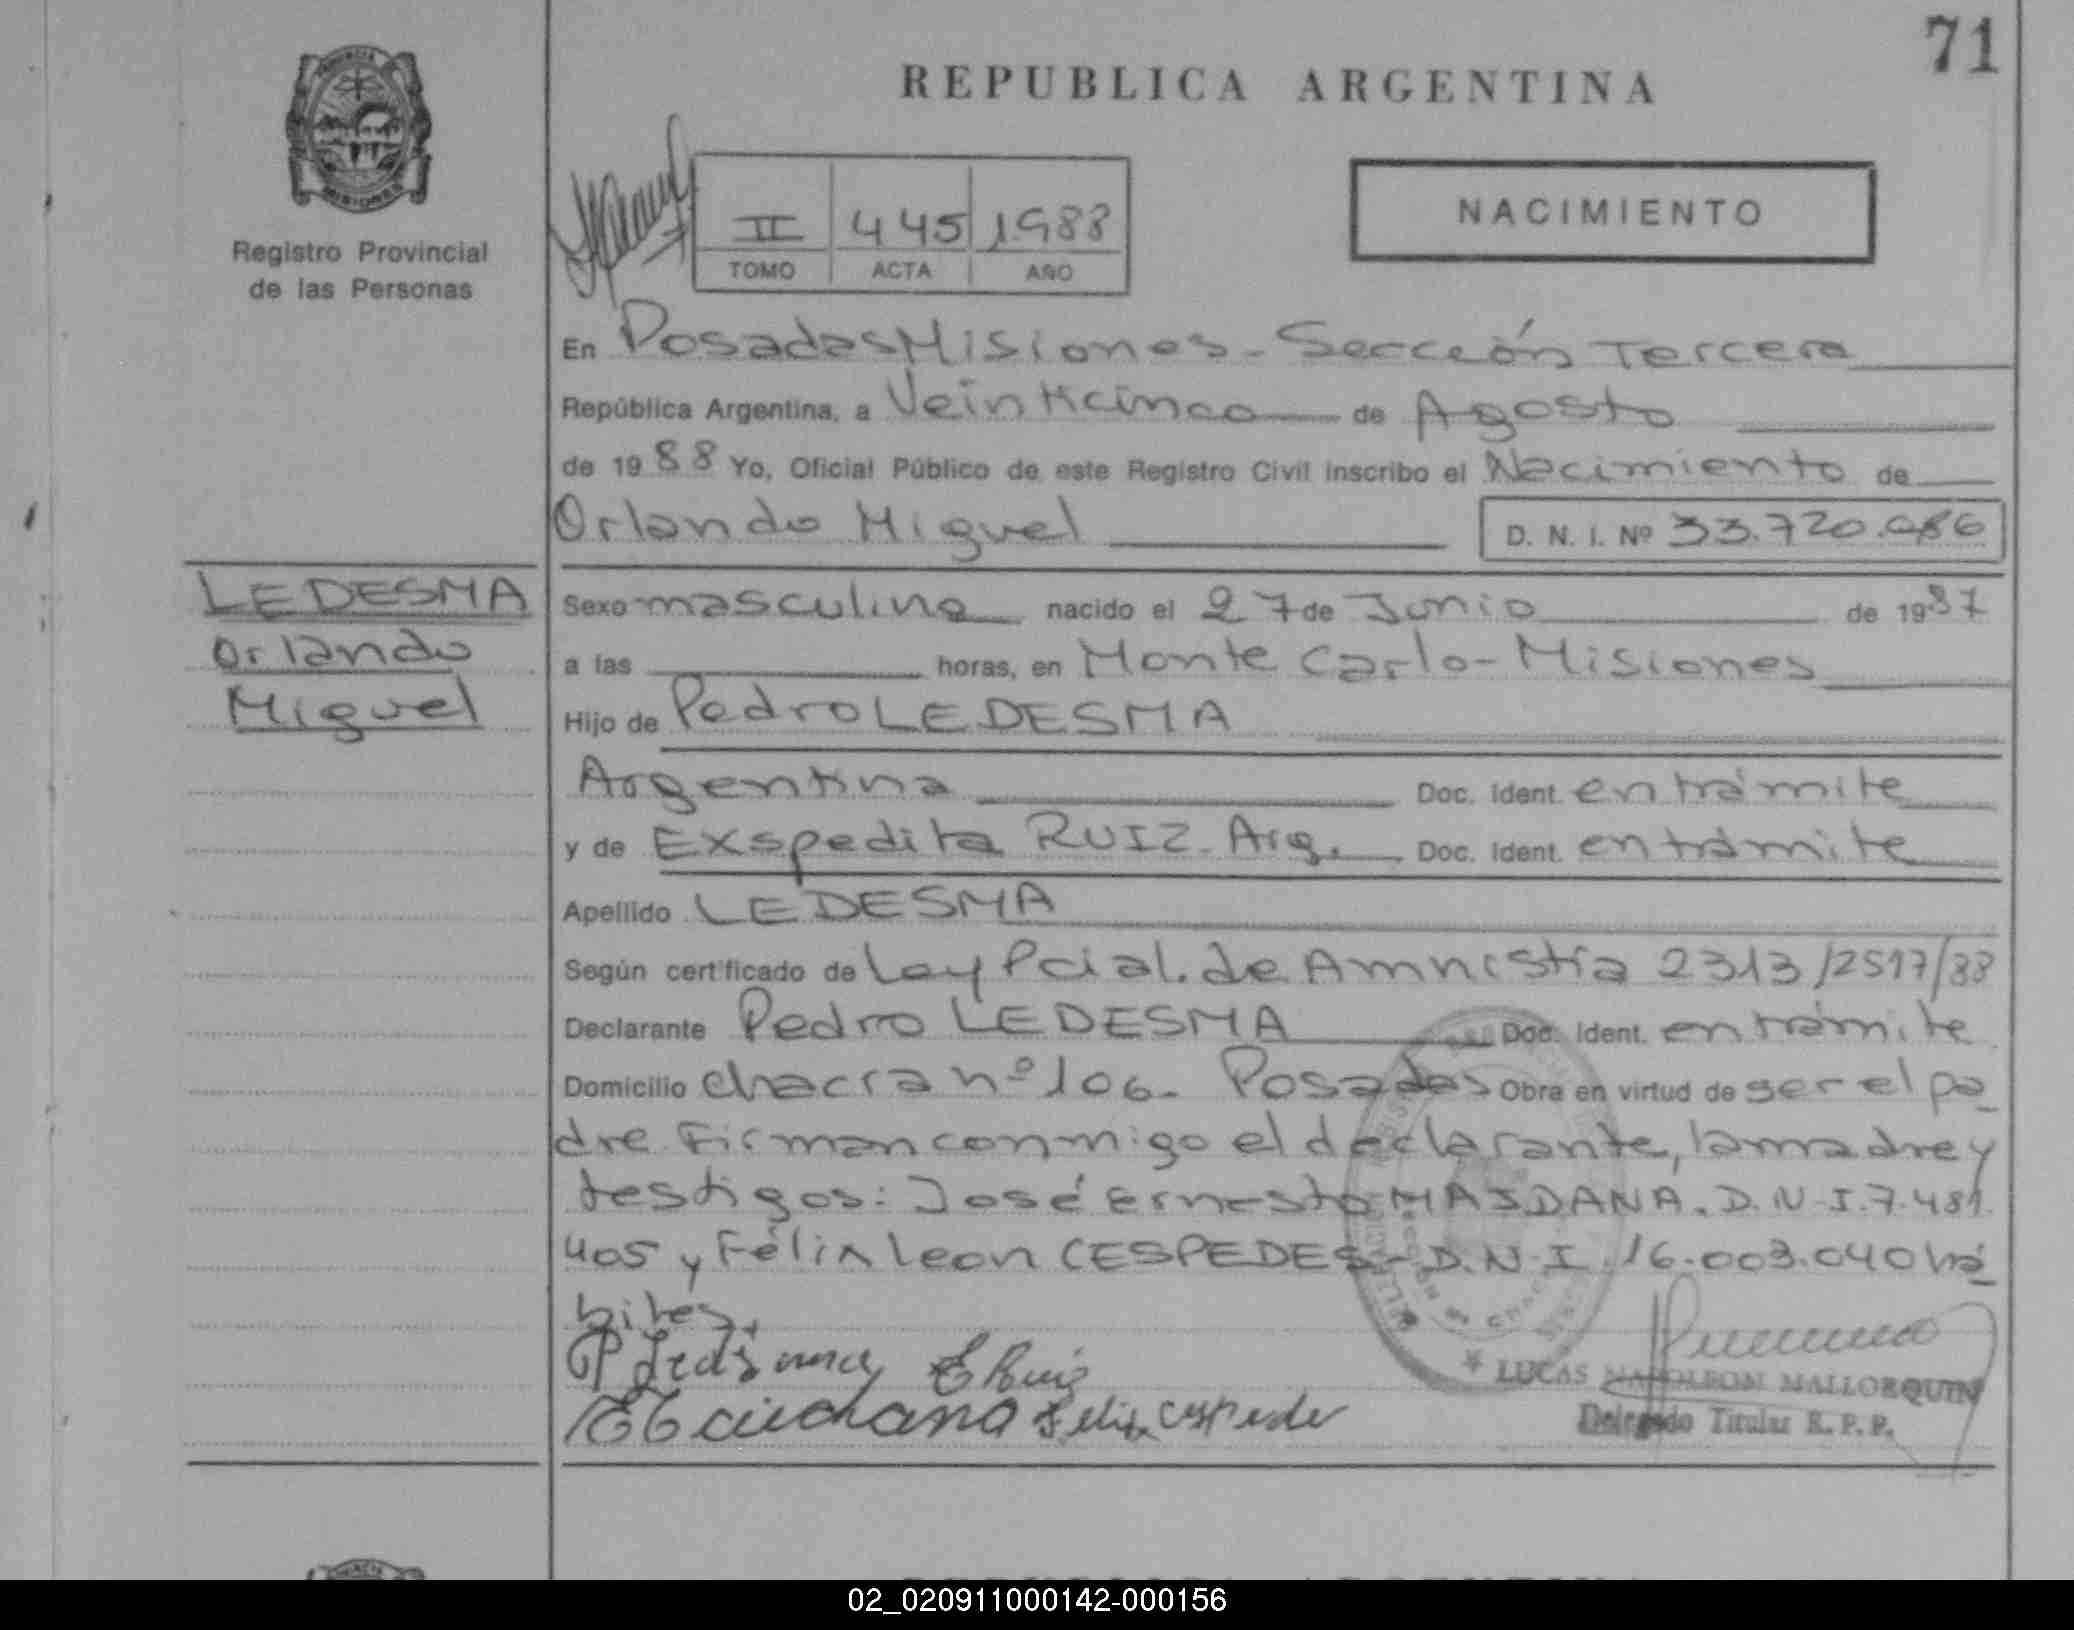 71
REPUBLICA ARGENTINA
PROVINCIA
MISIONES
Registro Provincial
de las Personas
II 445 1988
TOMO ACTA AÑO
NACIMIENTO
En Posadas Misiones - Sección Tercera
República Argentina, a Veinticinco de Agosto
de 1988 Yo, Oficial Público de este Registro Civil inscribo el Nacimiento de
Orlando Miguel D. N. I. Nº 33.720.086
LEDESMA
Orlando
Miguel
Sexo masculino nacido el 27 de Junio de 1987
a las horas, en Monte Carlo - Misiones
Hijo de Pedro LEDESMA
Argentina Doc. Ident. en trámite
y de Exspedita RUIZ - Arg. Doc. Ident. en trámite
Apellido LEDESMA
Según certificado de Ley Pcial. de Amnistía 2313/2517/88
Declarante Pedro LEDESMA Doc. Ident. en trámite
Domicilio chacra nº 106 - Posadas Obra en virtud de ser el pa_
dre. Firman conmigo el declarante, la madre y
testigos: José Ernesto MAIDANA. D.N.I. 7.481.
405 y Félix Leon CESPEDES - D.N.I. 16.003.040 há_
biles.
P Ledesma E Ruiz
Felix Cespedes
LUCAS NAPOLEON MALLORQUIN
Delegado Titular R. P. P.
02_020911000142-000156